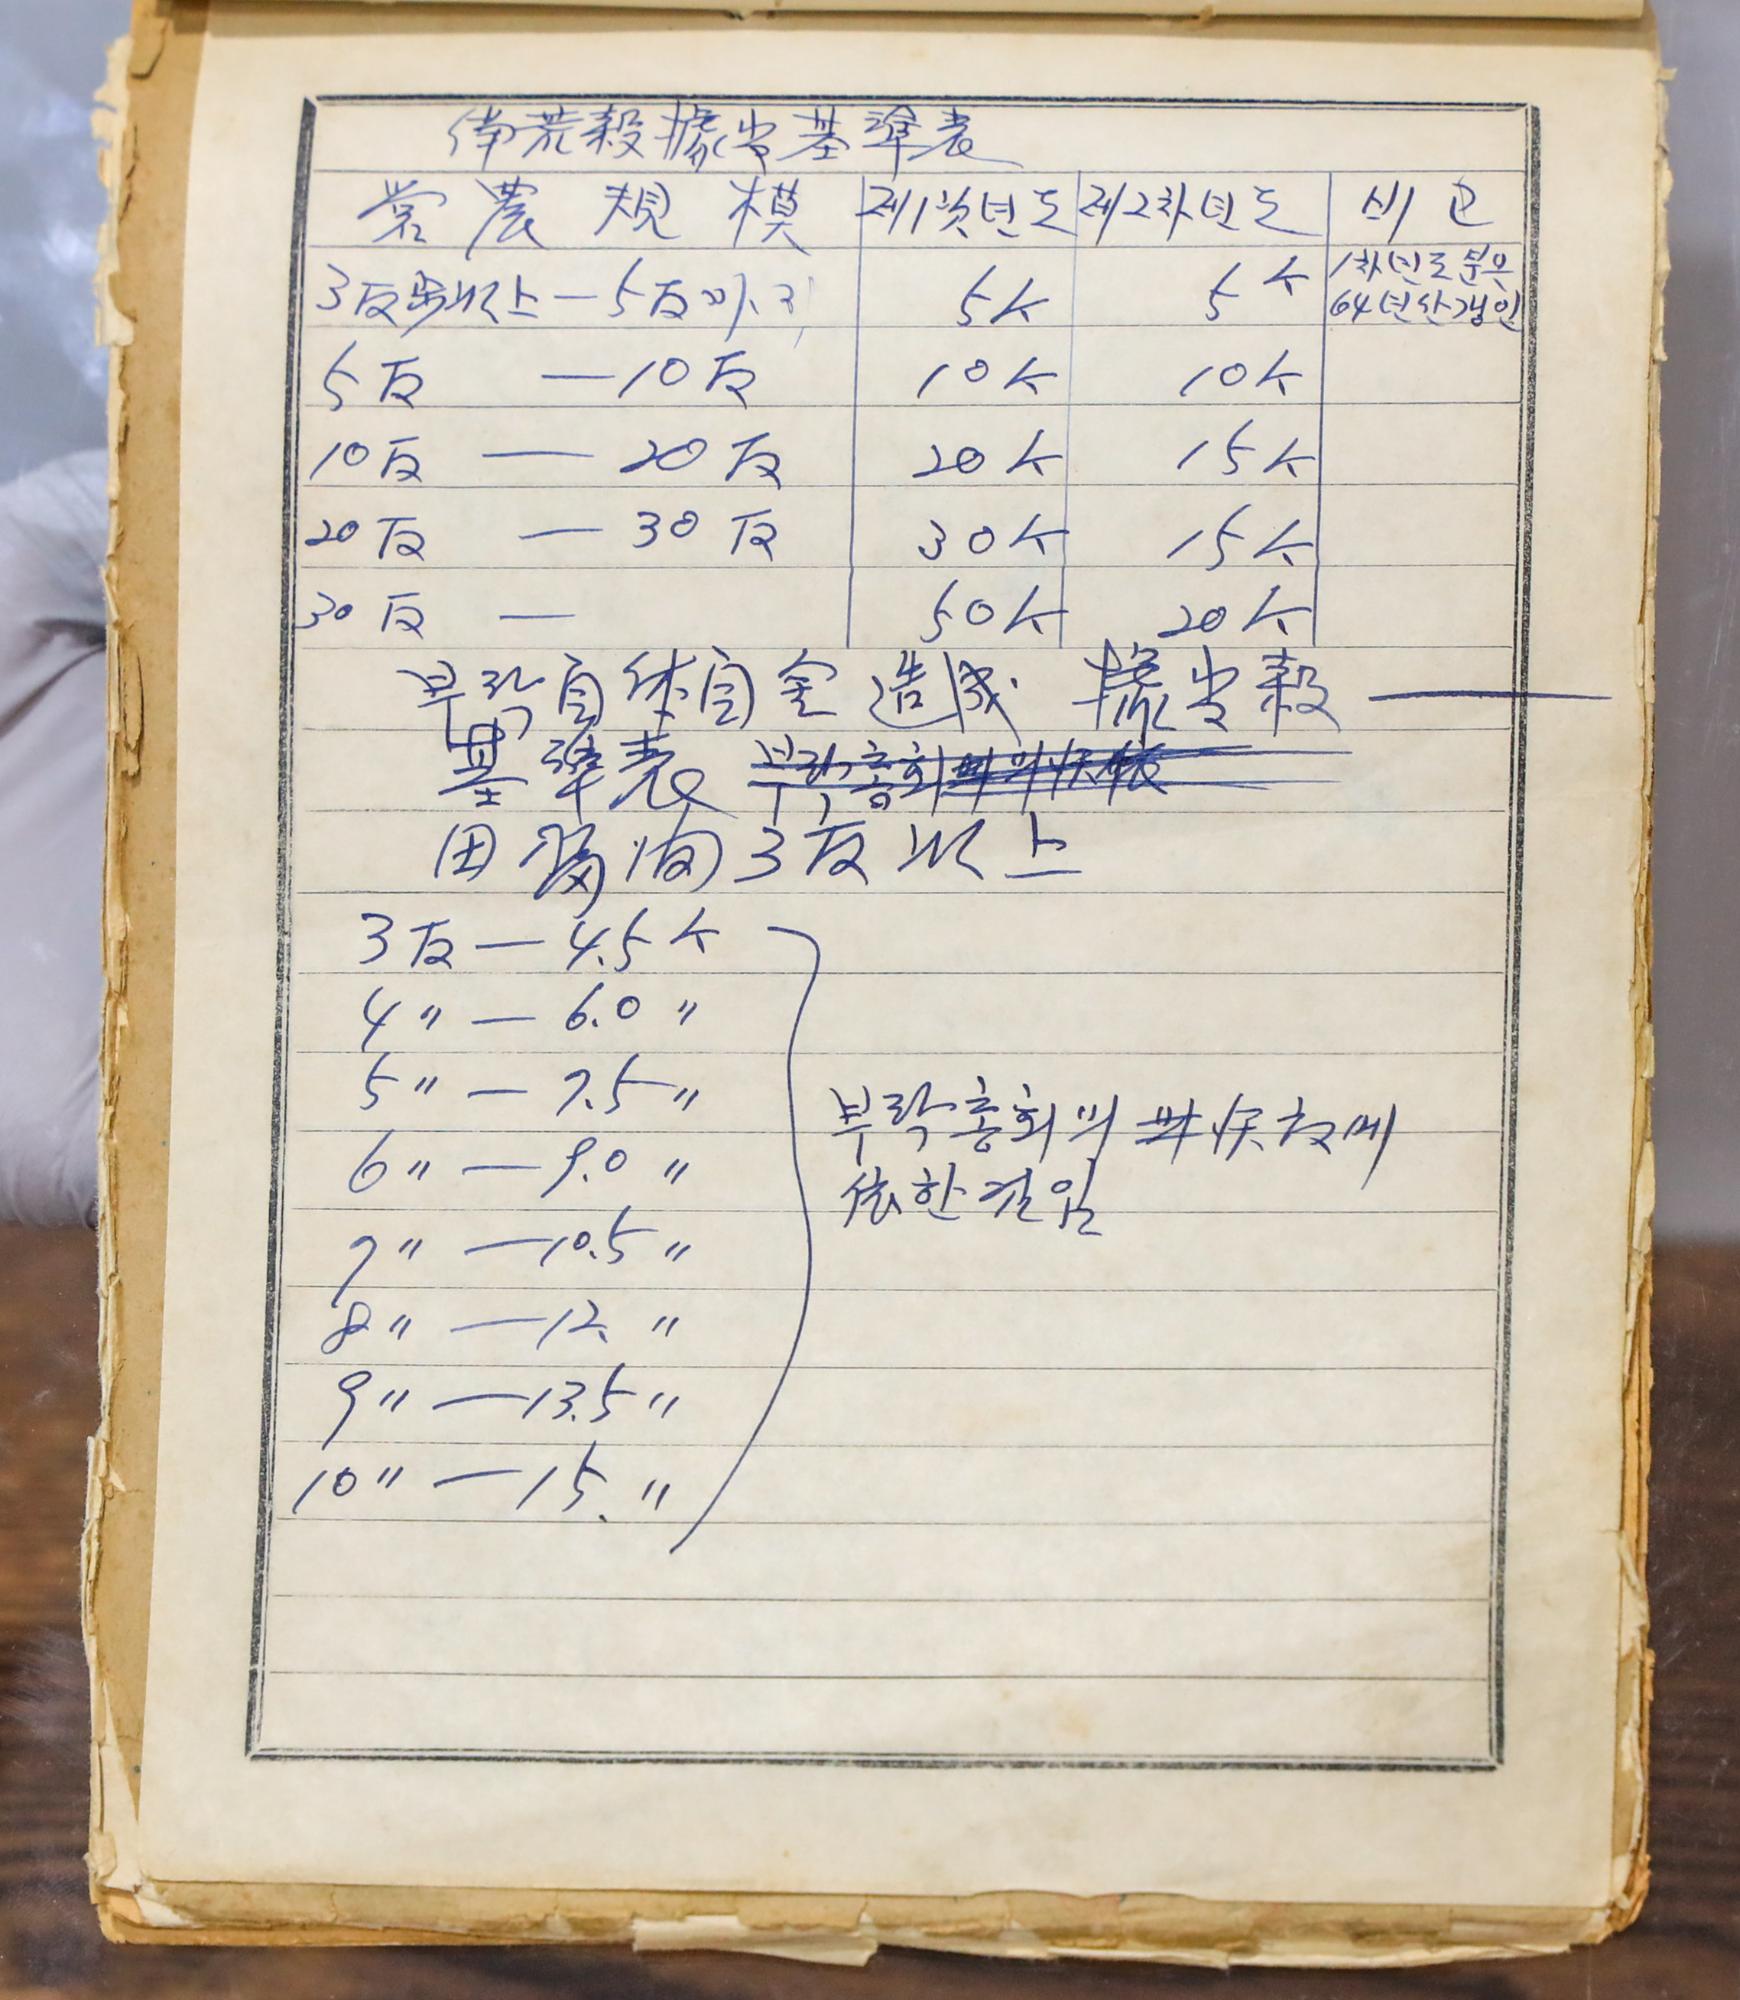 備荒穀據出基準表
營農規模 제1次년도 제2차년도 비고
3反步以上—5反까지 5k 5k 1차년도분은 64년산갱인
5反 —10反 10k 10k
10反 — 20反 20k 15k
20反 — 30反 30k 15k
30反 — 50k 20k
부락自体自金造成 據出穀 —
基準表 부락총회
田畓 3反以上
3反 — 4.5k
4〃 — 6.0〃
5〃 — 7.5〃
6〃 — 9.0〃
7〃 — 10.5〃
8〃 — 12.〃
9〃 — 13.5〃
10〃 — 15.〃
부락총회의
依한것임